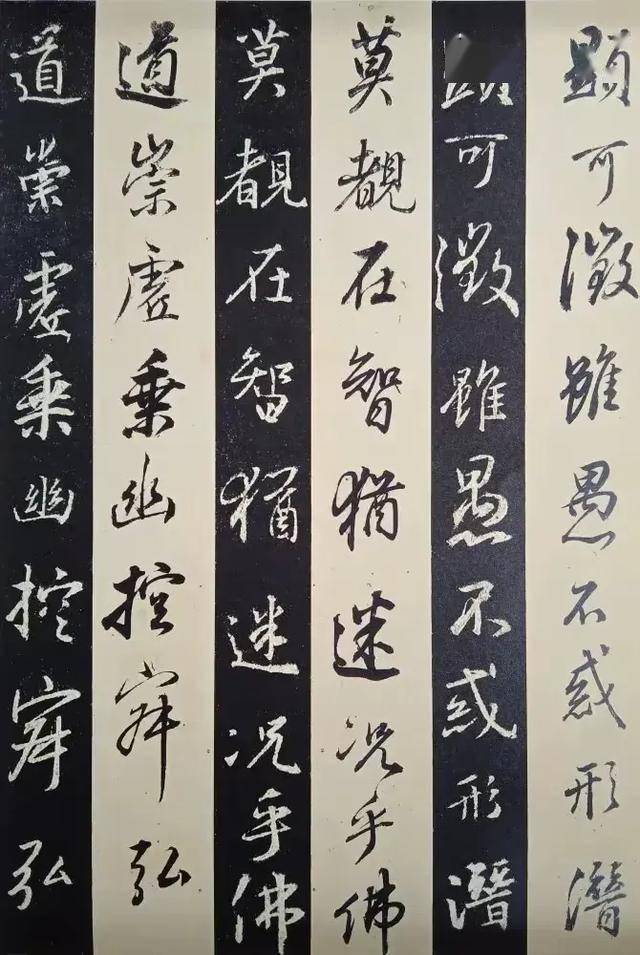 顯可徵雖愚不惑形潛
可徵雖愚不惑形潛
莫覩在智猶迷況乎佛
莫覩在智猶迷況乎佛
道崇虛乘幽控寂弘
道崇虛乘幽控寂弘